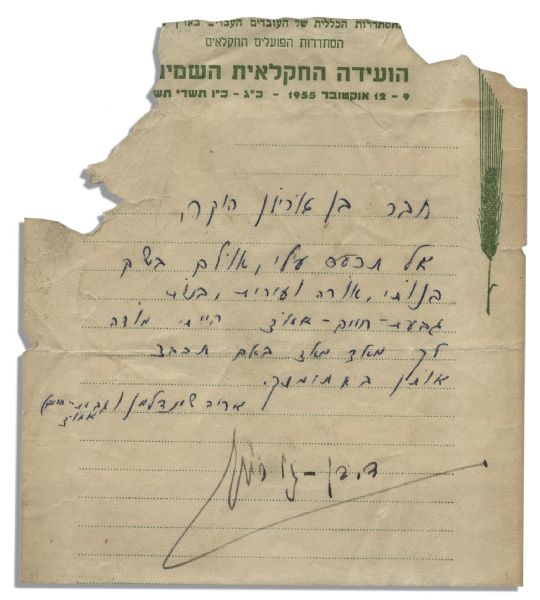 הסתדרות הכללית של העובדים העברים בארץ
הסתדרות הפועלים החקלאים
הועידה החקלאית השמינ
9 - 12 אוקטובר 1955 - כ"ג - כ"ו תשרי תש
חבר בן גוריון היקר,
אל תכעס עלי, אולם בשם
בנותי, אורה ועירית, בנות
גבעת-חיים-איחוד הייתי מודה
לך מאד מאד באם תכבד
אותן בחתימתך.
אריה (גבעת-חיים)
איחוד
ד. בן-גוריון